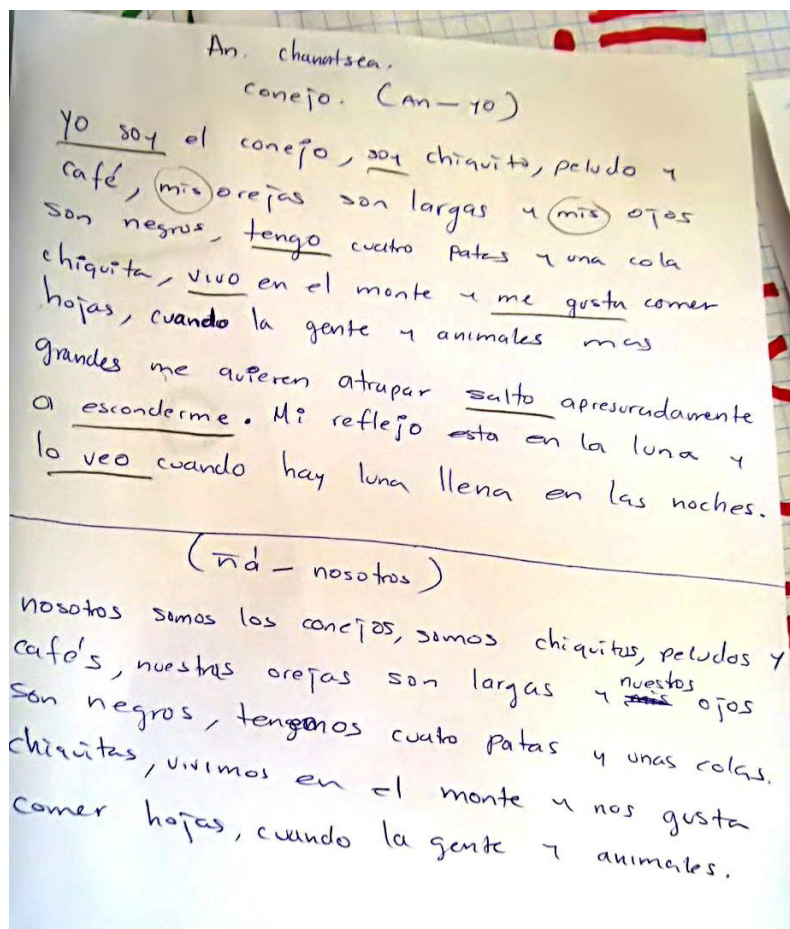 An. chanatsea.
conejo. (An - yo)
yo soy el conejo, soy chiquito, peludo y
café, mis orejas son largas y mis ojos
son negros, tengo cuatro patas y una cola
chiquita, vivo en el monte y me gusta comer
hojas, cuando la gente y animales mas
grandes me quieren atrapar salto apresuradamente
a esconderme. Mi reflejo esta en la luna y
lo veo cuando hay luna llena en las noches.
(ñá - nosotros)
nosotros somos los conejos, somos chiquitos, peludos y
cafés, nuestras orejas son largas y nuestos ojos
son negros, tengomos cuatro patas y unas colas.
chiquitas, vivimos en el monte y nos gusta
comer hojas, cuando la gente y animales.